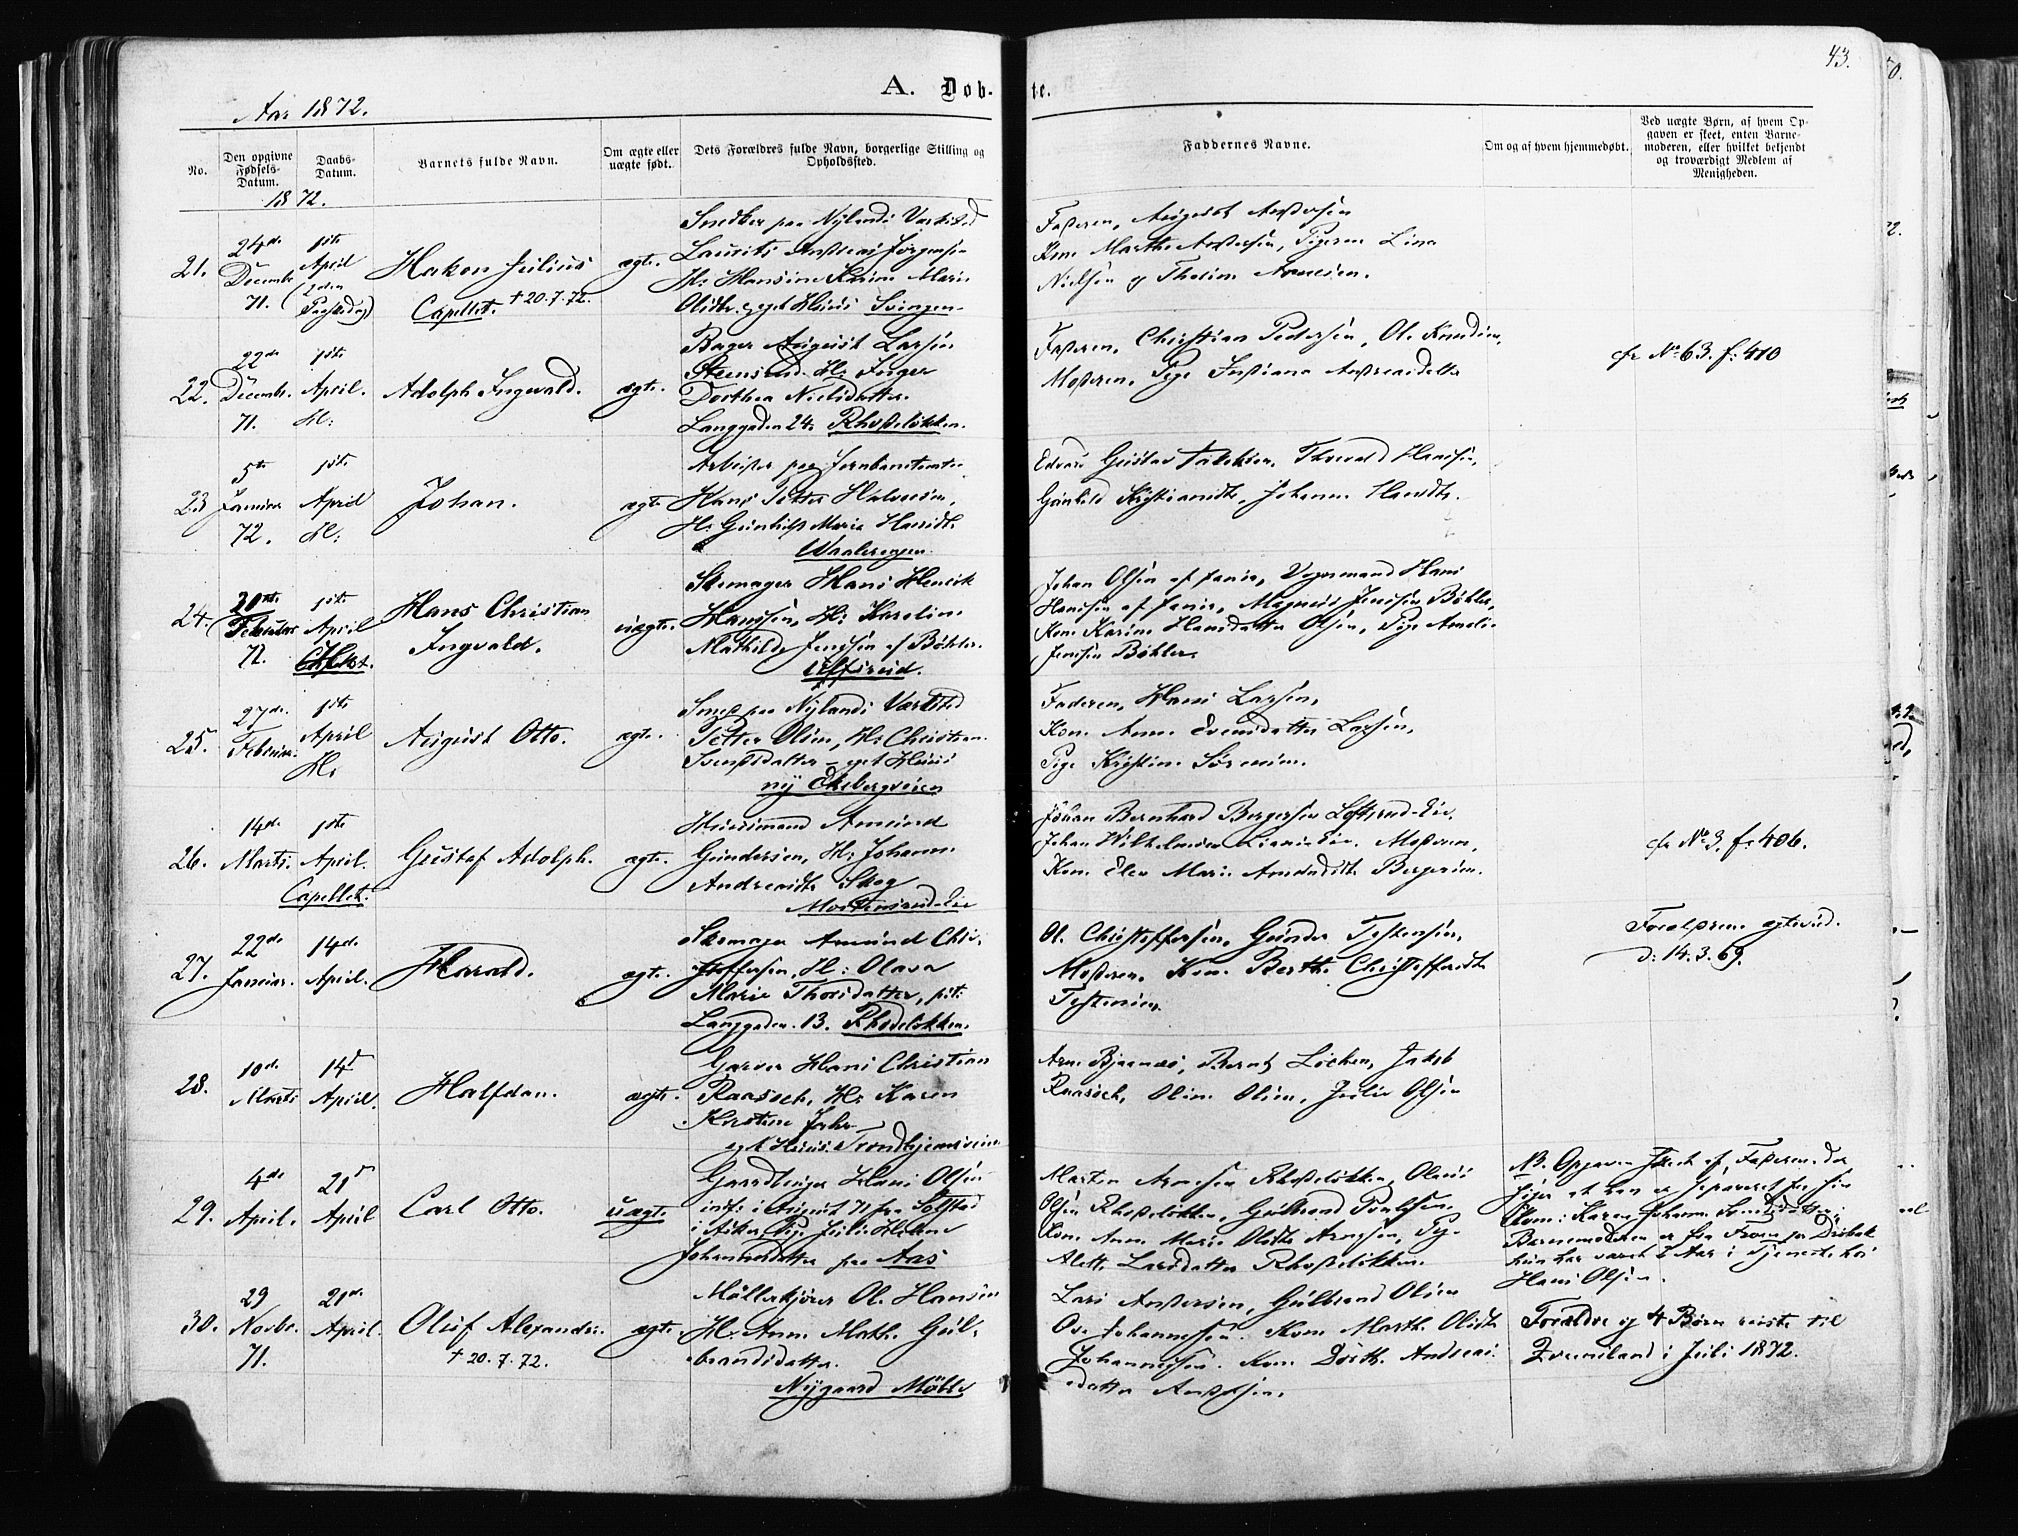 43.
A. Døb-
te.
Aar 1872.
No.
Den opgivne Fødsels-Datum.
Daabs-Datum.
Barnets fulde Navn.
Om ægte eller uægte født.
Dets Forældres fulde Navn, borgerlige Stilling og Opholdssted.
Faddernes Navne.
Om og af hvem hjemmedøbt.
Ved uægte Børn, af hvem Opgaven er skeet, enten Barnemoderen, eller hvilket bekjendt og troværdigt Medlem af Menigheden.
1872.
21.
24de Decembr 71.
1ste April (2den Paaskedag)
Hakon Julius
Capellet. † 20.7.72.
ægte.
Snedker paa Nylands Værksted
Laurits Andreas Jørgensen
H: Hansine Karine Marie
Olsdtr. eget Huus Svingen
Faderen, August Andersen
Kone Marthe Andersen, Pigerne Lina
Nielsen og
22.
22de Decembr. 71.
1ste April. Kl:
Adolph Ingvald.
ægte.
Bager August Larsen
Steensrud H: Inger
Dorthea Nielsdatter.
Langgaden 24. Rhodeløkken.
Faderen, Christian Pedersen, Ole Knudsen,
Moderen, Pige Andreasdatter
cfr No 63. f: 410
23
5te Januar 72.
1ste April Kl:
Johan.
ægte
Arbeider paa Jernbanetomten
Hans Petter Halvorsen,
H: Gunhild Marie Hansdtr.
Waalerengen.
Edvard Gustav Thorvald Hansen,
Gunhild Kristiansdtr, Johanne Hansdtr.
24.
20de Februar 72.
1ste April Capellet.
Hans Christian
Ingvald.
uægte.
Skomager Hans Henrik
Hanssen, H: Karoline
Mathilde Jenssen af Bøhler.
Ulfsrud.
Johan Olsen af Vognmand Hans
Hansen af Magnus Jensen Bøhler,
Kone Karine Hansdatter Olsen, Pige Amalie
Jensen Bøhler.
25.
27de Februar.
1ste April Kl:
August Otto.
ægte.
Smed paa Nylands Værksted
Petter Olsen, H: Christine
Svendsdatter – eget Huus
ny Ekebergveien
Faderen, Hans Larsen,
Kone Anne Svendsdatter Larsen,
Pige Kristine Sørensen.
26.
14de Marts.
1ste April. Capellet.
Gustaf Adolph.
ægte.
Huusmand Amund
Gundersen, H: Johanne
Andreasdtr Skog
Mortensrud-Eie
Johan Bernhard Bergersen Loftsrud-Eie,
Johan Wilhelmsen Moderen,
Kone Elen Marie Amundsdtr Bergersen.
cfr No 3. f: 406.
27.
22de Januar.
14de April.
Harald.
ægte.
Skomager Amund Chri-
stoffersen, H: Olava
Marie Thorsdatter,
Langgaden 13. Rhodeløkken.
Ole Christoffersen, Gunder Torstensen,
Moderen, Kone Berthe Christoffersdtr
Torstensen.
Forældrene ægteviet
d: 14.3.69.
28.
10de Marts
14d April.
Halfdan.
ægte.
Garver Hans Christian
Raasoch, H: Karen
Kirstine
eget Huus. Trondhjemsveien
Arne Bjaanæs, Bernt Løchen, Jakob
Raasoch, Oline Olsen, Julie Olsen
29.
4de April.
21d April
Carl Otto.
uægte.
Gaardbruger Hans Olsen
indf: i August 71 fra Solstad
i Asker, Pige Julie Helene
Johannesdatter paa Aas
Morten Arnesen Rhodeløkken, Olaus
Olsen Rhodeløkken, Gulbrand Poulsen
Kone Anne Marie Olsdtr Arnesen, Pige
Alette Larsdatter Rhodeløkken.
NB. Opgaven skeet af Faderen der
siger at han er separeret fra sin
Kone: Karen Johanne
Barnemoderen er fra Froen pr Drøbak
hun har været 2 Aar i Tjeneste hos
Hans Olsen.
30.
29 Novbr. 71.
21de April.
Oluf Alexander.
† 20.7.72.
ægte.
Møllekjører Ole Hansen
H: Anne Math. Gul-
brandsdatter.
Nygaard Mølle
Lars Andersen, Gulbrand Olsen
Ole Johannessen. Kone Marthe Olsdtr
Johannessen. Kone Dorth. Andreas-
datter Andersen.
Forældre og 4 Børn reiste til
Qveensland i Juli 1872.